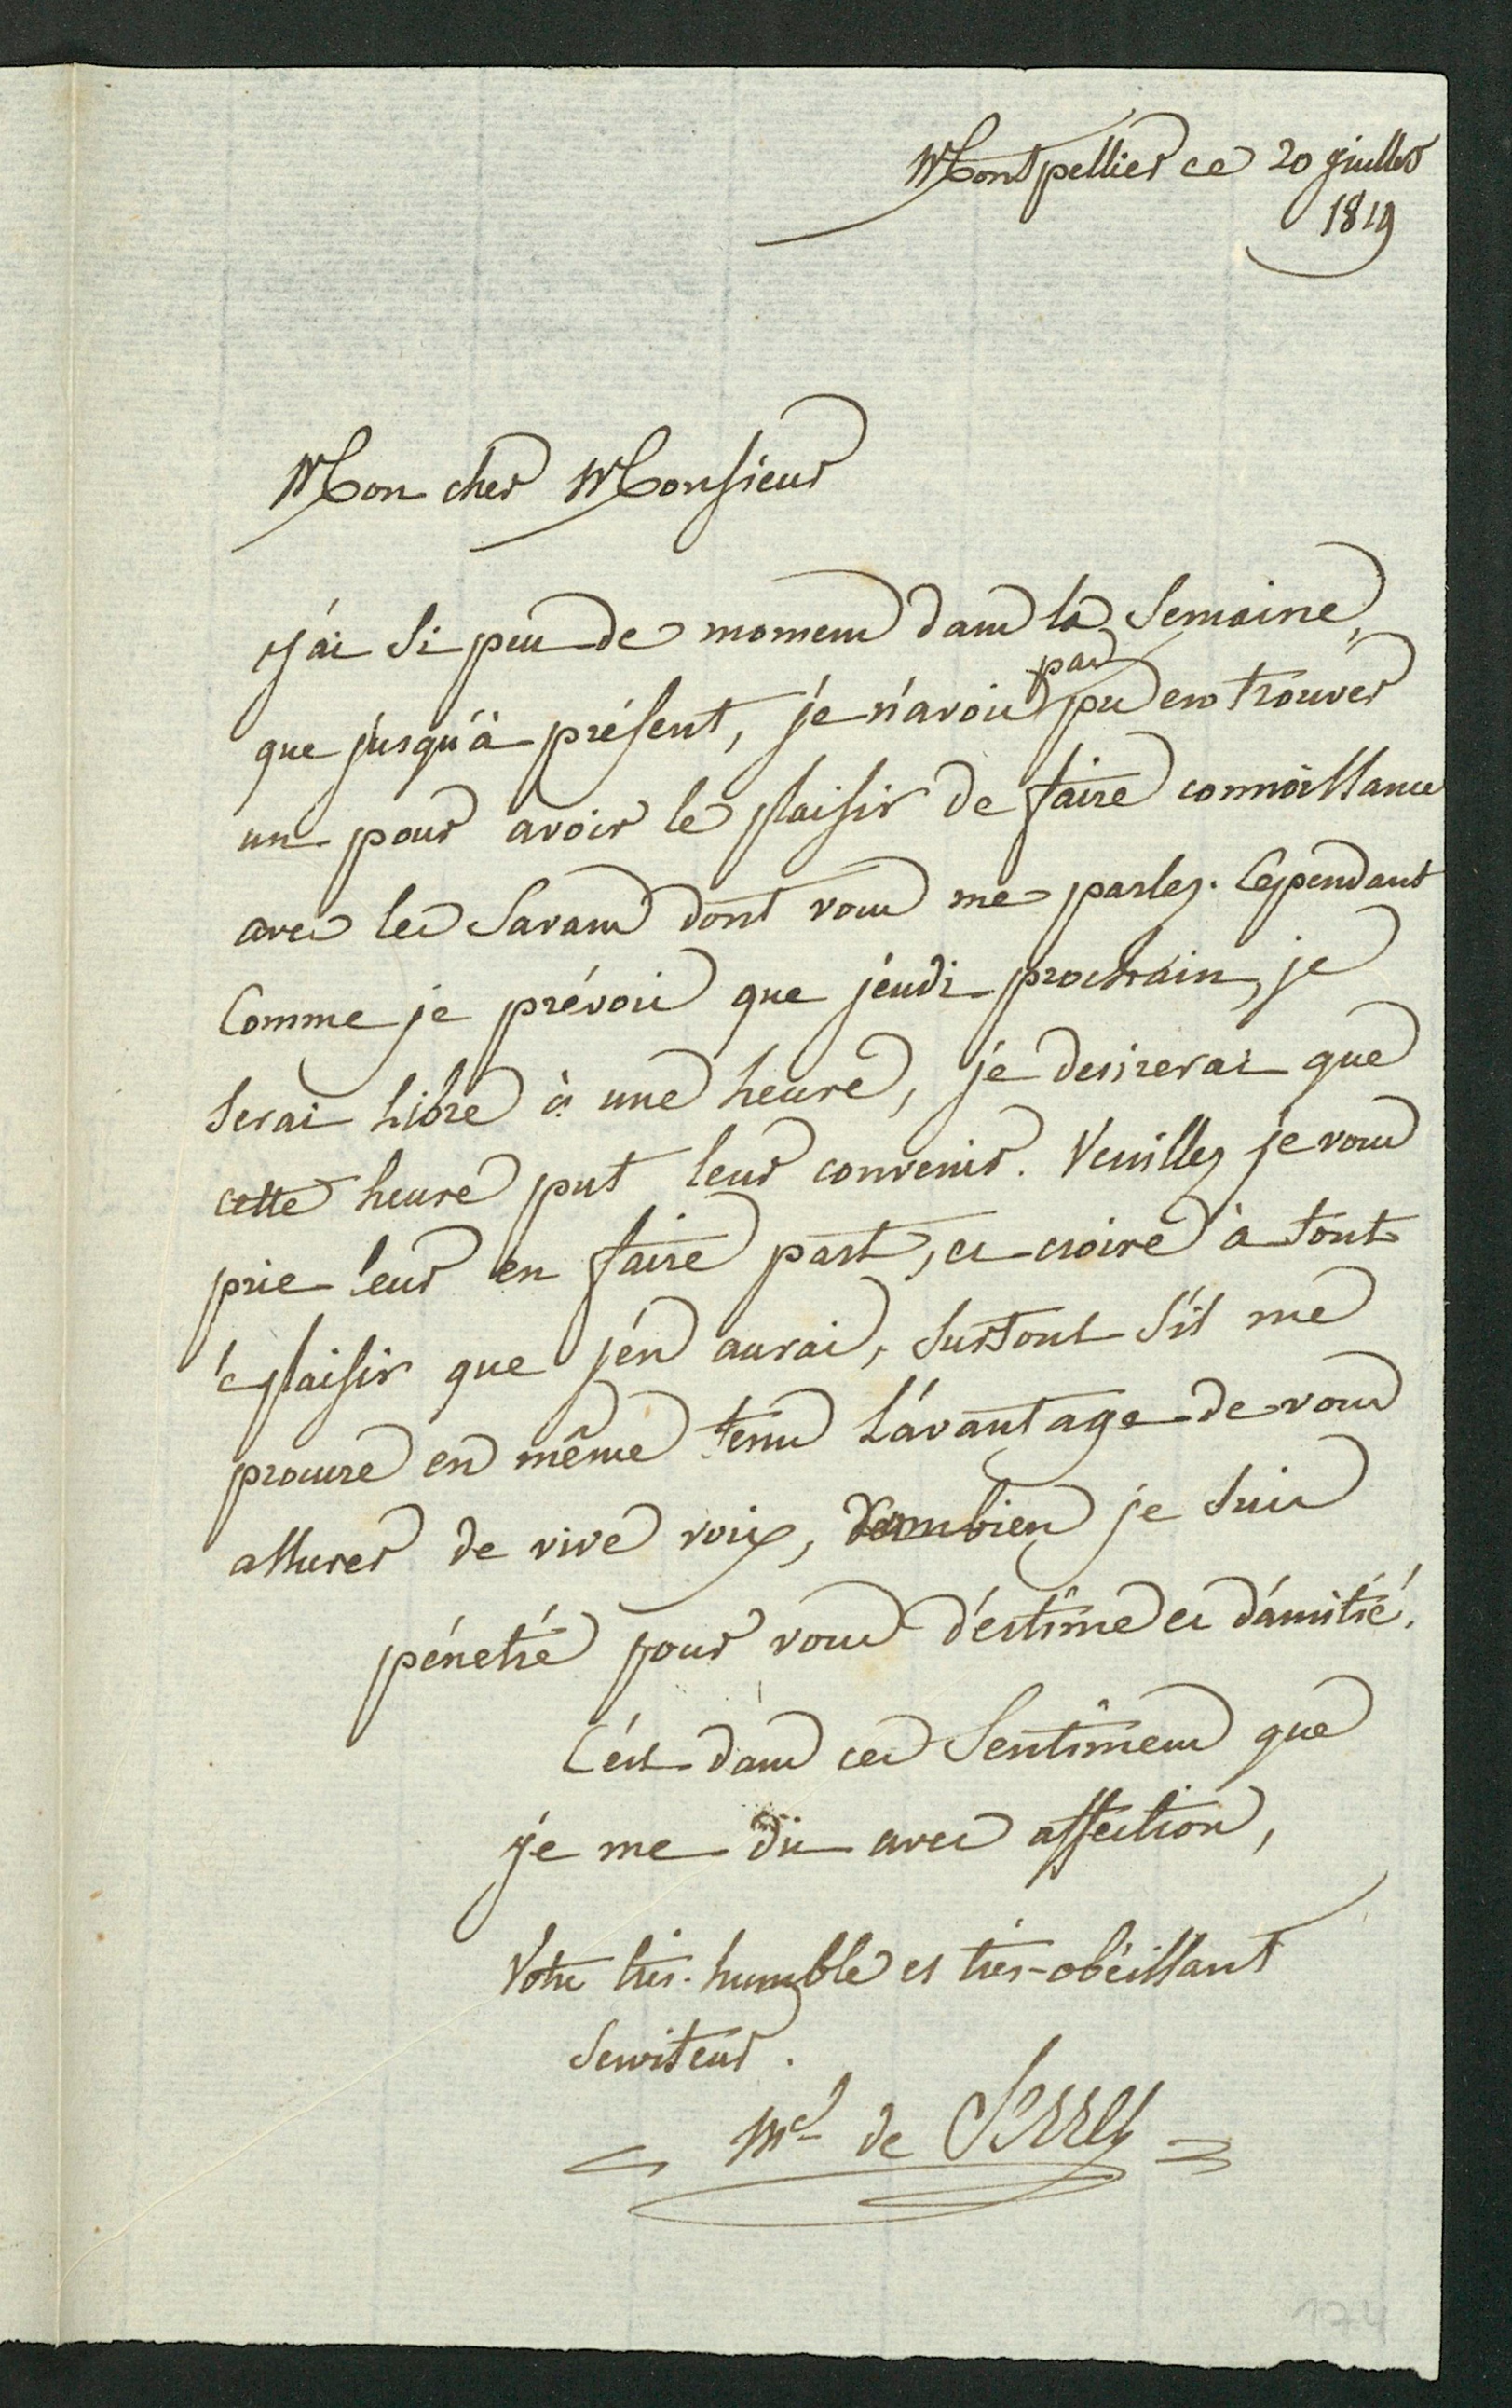 Montpellier ce 20 juillet
1819
Mon cher Monsieur
j'ai si peu de momens dans la semaine,
que jusqu'à présent, je n'avois pas pu en trouver
un pour avoir le plaisir de faire connoissance
avec les savans dont vous me parlez. Cependant
Comme je prévois que jeudi prochain, je
serai libre à une heure, je desirerai que
cette heure put leur convenir. Veuillez je vous
prie leur en faire part, et croire à tout
le plaisir que j'en aurai, surtout s'il me
procure en même tems l'avantage de vous
assurer de vive voix, combien je suis
pénetré pour vous d'estime et d'amitié.
C'est dans ces sentimens que
je me dis avec affection,
Votre très-humble et très-obéissant
serviteur.
Ml de Serres
174